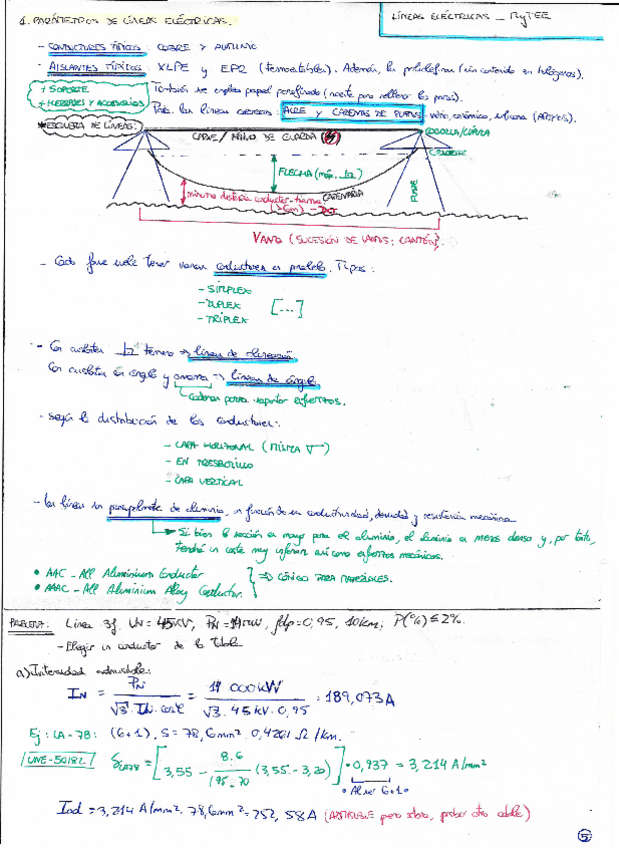 LÍNEAS ELÉCTRICAS _ RyTEE
1. PARÁMETROS DE LÍNEAS ELÉCTRICAS.
- CONDUCTORES TÍPICOS: COBRE Y ALUMINIO
- AISLANTES TÍPICOS: XLPE y EPR (termoestables). Además, las poliolefinas (sin contenido en halógenos).
+ SOPORTE
+ HERRAJES Y ACCESORIOS
También se emplea papel parafinado (aceite para rellenar los poros).
Para las líneas aéreas: AIRE Y CADENAS DE PLATOS vidrio, cerámica,
* ESQUEMA DE LÍNEAS:
CABLE / HILO DE GUARDA
FLECHA (máx.
CATENARIA
mínima distancia conductor-terreno
VANO (SUCESIÓN DE VANOS: CANTÓN).
- Cada fase suele tener varios conductores en paralelo. Tipos:
- SIMPLEX
- DUPLEX [...]
- TRIPLEX
- Con aisladores tenemos → líneas de alineación
Con aisladores en ángulo y amarra → líneas de ángulo
Cadenas para soportar esfuerzos.
- Según la distribución de los conductores:
- CAPA HORIZONTAL (MISMA
- EN TRESBOLILLO
- CAPA VERTICAL
- Las líneas son generalmente de aluminio, en función de su conductividad, densidad y resistencia mecánica
Si bien la sección es mayor para el aluminio, el aluminio es menos denso y, por tanto,
tendrá un coste muy inferior así como esfuerzos mecánicos.
• AAC - All Aluminium Conductor
• AAAC - All Aluminium Alloy Conductor.
⇒ CÓDIGO PARA MATERIALES.
PROBLEMA: Línea 3f, UN = 45KV, PN = 14MW, fdp = 0,95, 10Km; P(%) ≤ 2%.
- Elegir un conductor de la tabla
a) Intensidad admisible:
IN = PN / √3 · UN · cosφ = 14 000 kW / √3 · 45 KV · 0,95 = 189,073 A
Ej: LA-78: (6+1), S = 78,6mm² 0,4261 Ω/km.
UNE-50182 δLA78 = [3,55 - 8.6 / (95-70) (3,55-3,20)] · 0,937 = 3,214 A/mm²
• Al-ac 6+1
Iad = 3,214 A/mm² · 78,6mm² = 252,58A (ADMISIBLE pero sobra, probar otro cable)
5